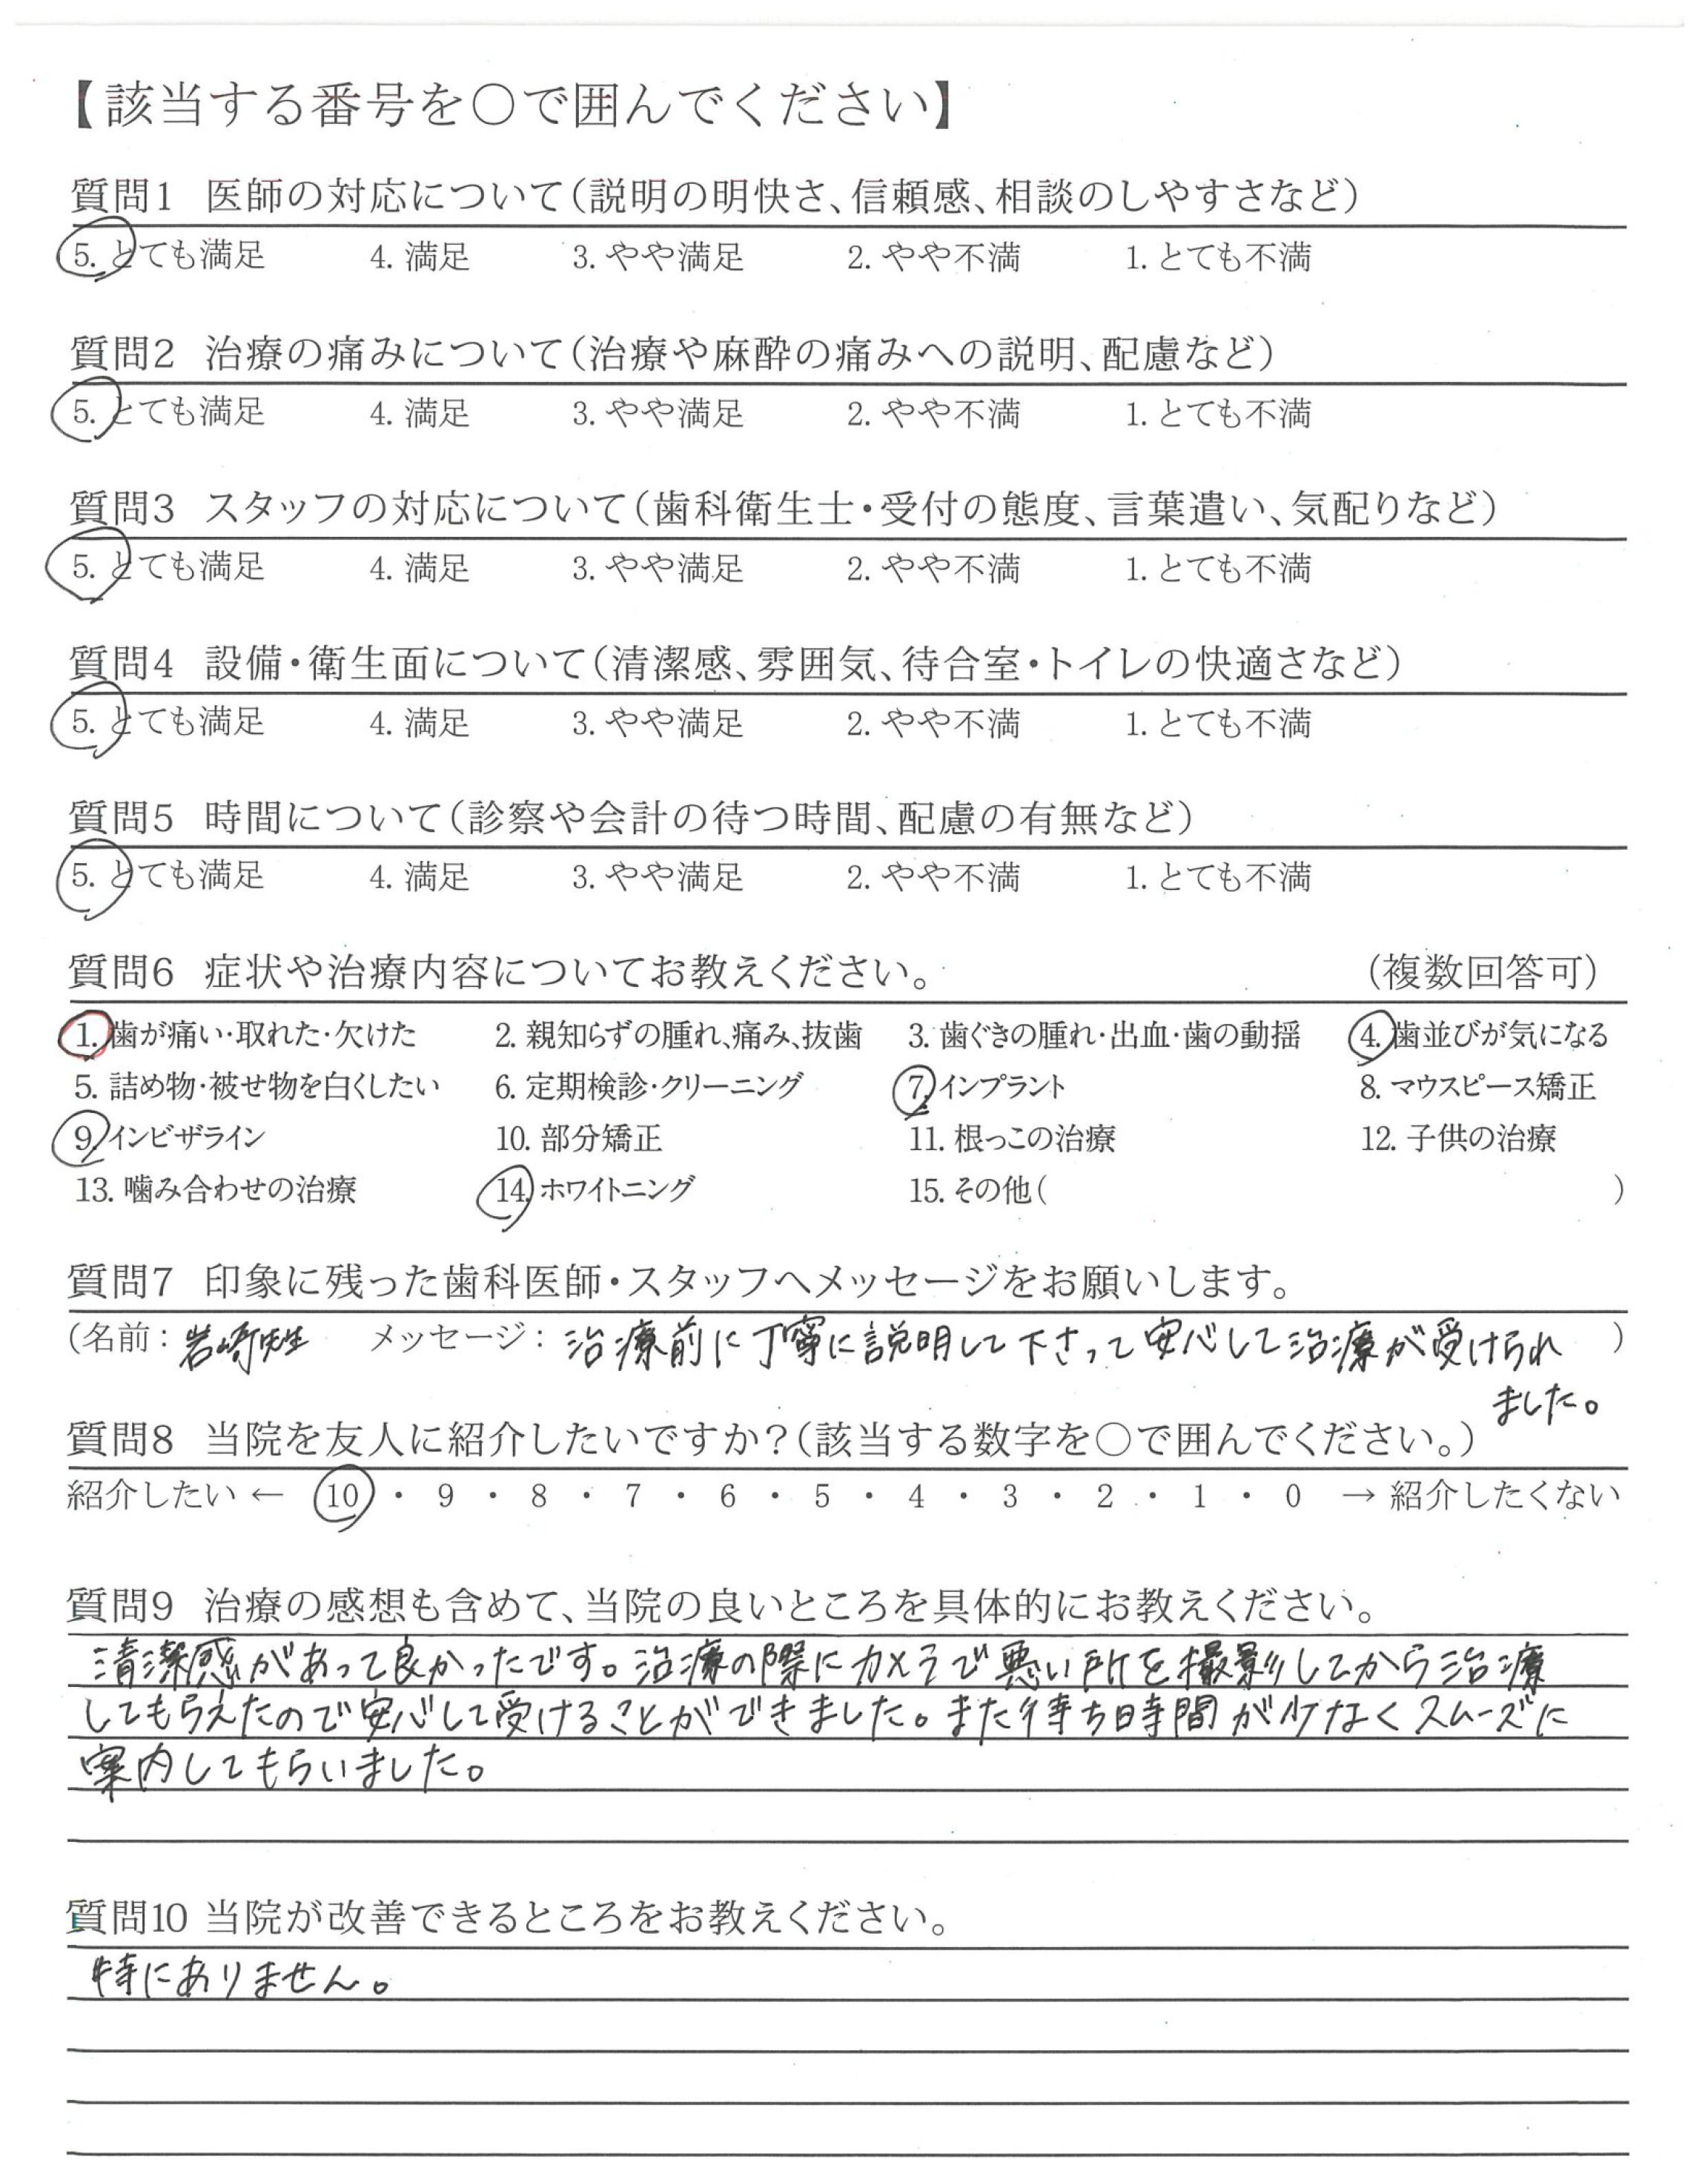 【該当する番号を〇で囲んでください】
質問1 医師の対応について(説明の明快さ、信頼感、相談のしやすさなど)
5. とても満足 4. 満足 3. やや満足 2. やや不満 1. とても不満
質問2 治療の痛みについて(治療や麻酔の痛みへの説明、配慮など)
5. とても満足 4. 満足 3. やや満足 2. やや不満 1. とても不満
質問3 スタッフの対応について(歯科衛生士・受付の態度、言葉遣い、気配りなど)
5. とても満足 4. 満足 3. やや満足 2. やや不満 1. とても不満
質問4 設備・衛生面について(清潔感、雰囲気、待合室・トイレの快適さなど)
5. とても満足 4. 満足 3. やや満足 2. やや不満 1. とても不満
質問5 時間について(診察や会計の待つ時間、配慮の有無など)
5. とても満足 4. 満足 3. やや満足 2. やや不満 1. とても不満
質問6 症状や治療内容についてお教えください。 (複数回答可)
1. 歯が痛い・取れた・欠けた 2. 親知らずの腫れ、痛み、抜歯 3. 歯ぐきの腫れ・出血・歯の動揺 4. 歯並びが気になる
5. 詰め物・被せ物を白くしたい 6. 定期検診・クリーニング 7. インプラント 8. マウスピース矯正
9. インビザライン 10. 部分矯正 11. 根っこの治療 12. 子供の治療
13. 噛み合わせの治療 14. ホワイトニング 15. その他( )
質問7 印象に残った歯科医師・スタッフへメッセージをお願いします。
(名前: 岩崎先生 メッセージ: 治療前に丁寧に説明して下さって安心して治療が受けられ )
ました。
質問8 当院を友人に紹介したいですか?(該当する数字を〇で囲んでください。)
紹介したい ← 10 ・ 9 ・ 8 ・ 7 ・ 6 ・ 5 ・ 4 ・ 3 ・ 2 ・ 1 ・ 0 → 紹介したくない
質問9 治療の感想も含めて、当院の良いところを具体的にお教えください。
清潔感があって良かったです。治療の際にカメラで悪い所を撮影してから治療
してもらえたので安心して受けることができました。また待ち時間が少なくスムーズに
案内してもらいました。
質問10 当院が改善できるところをお教えください。
特にありません。